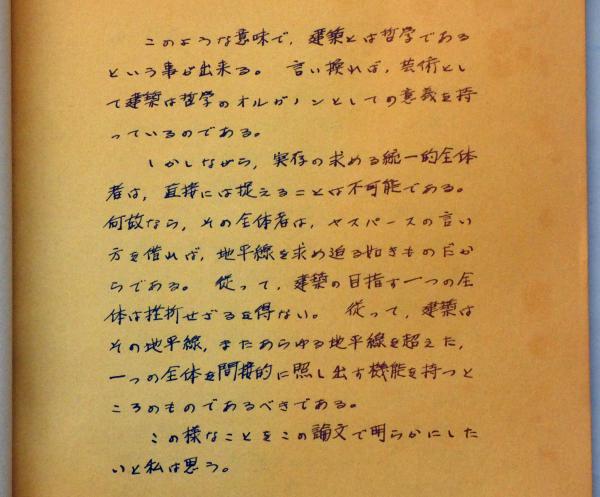 このような意味で，建築とは哲学である
という事が出来る。 言い換れば，芸術とし
て建築は哲学のオルガノンとしての意義を持
っているのである。
しかしながら，実存の求める統一的全体
者は，直接には捉えることは不可能である。
何故なら，その全体者は，ヤスパースの言い
方を借れば，地平線を求め迫る如きものだか
らである。 従って，建築の目指す一つの全
体は挫折せざるを得ない。 従って，建築は
その地平線，またあらゆる地平線を超えた，
一つの全体を間接的に照し出す機能を持つと
ころのものであるべきである。
この様なことをこの論文で明らかにした
いと私は思う。